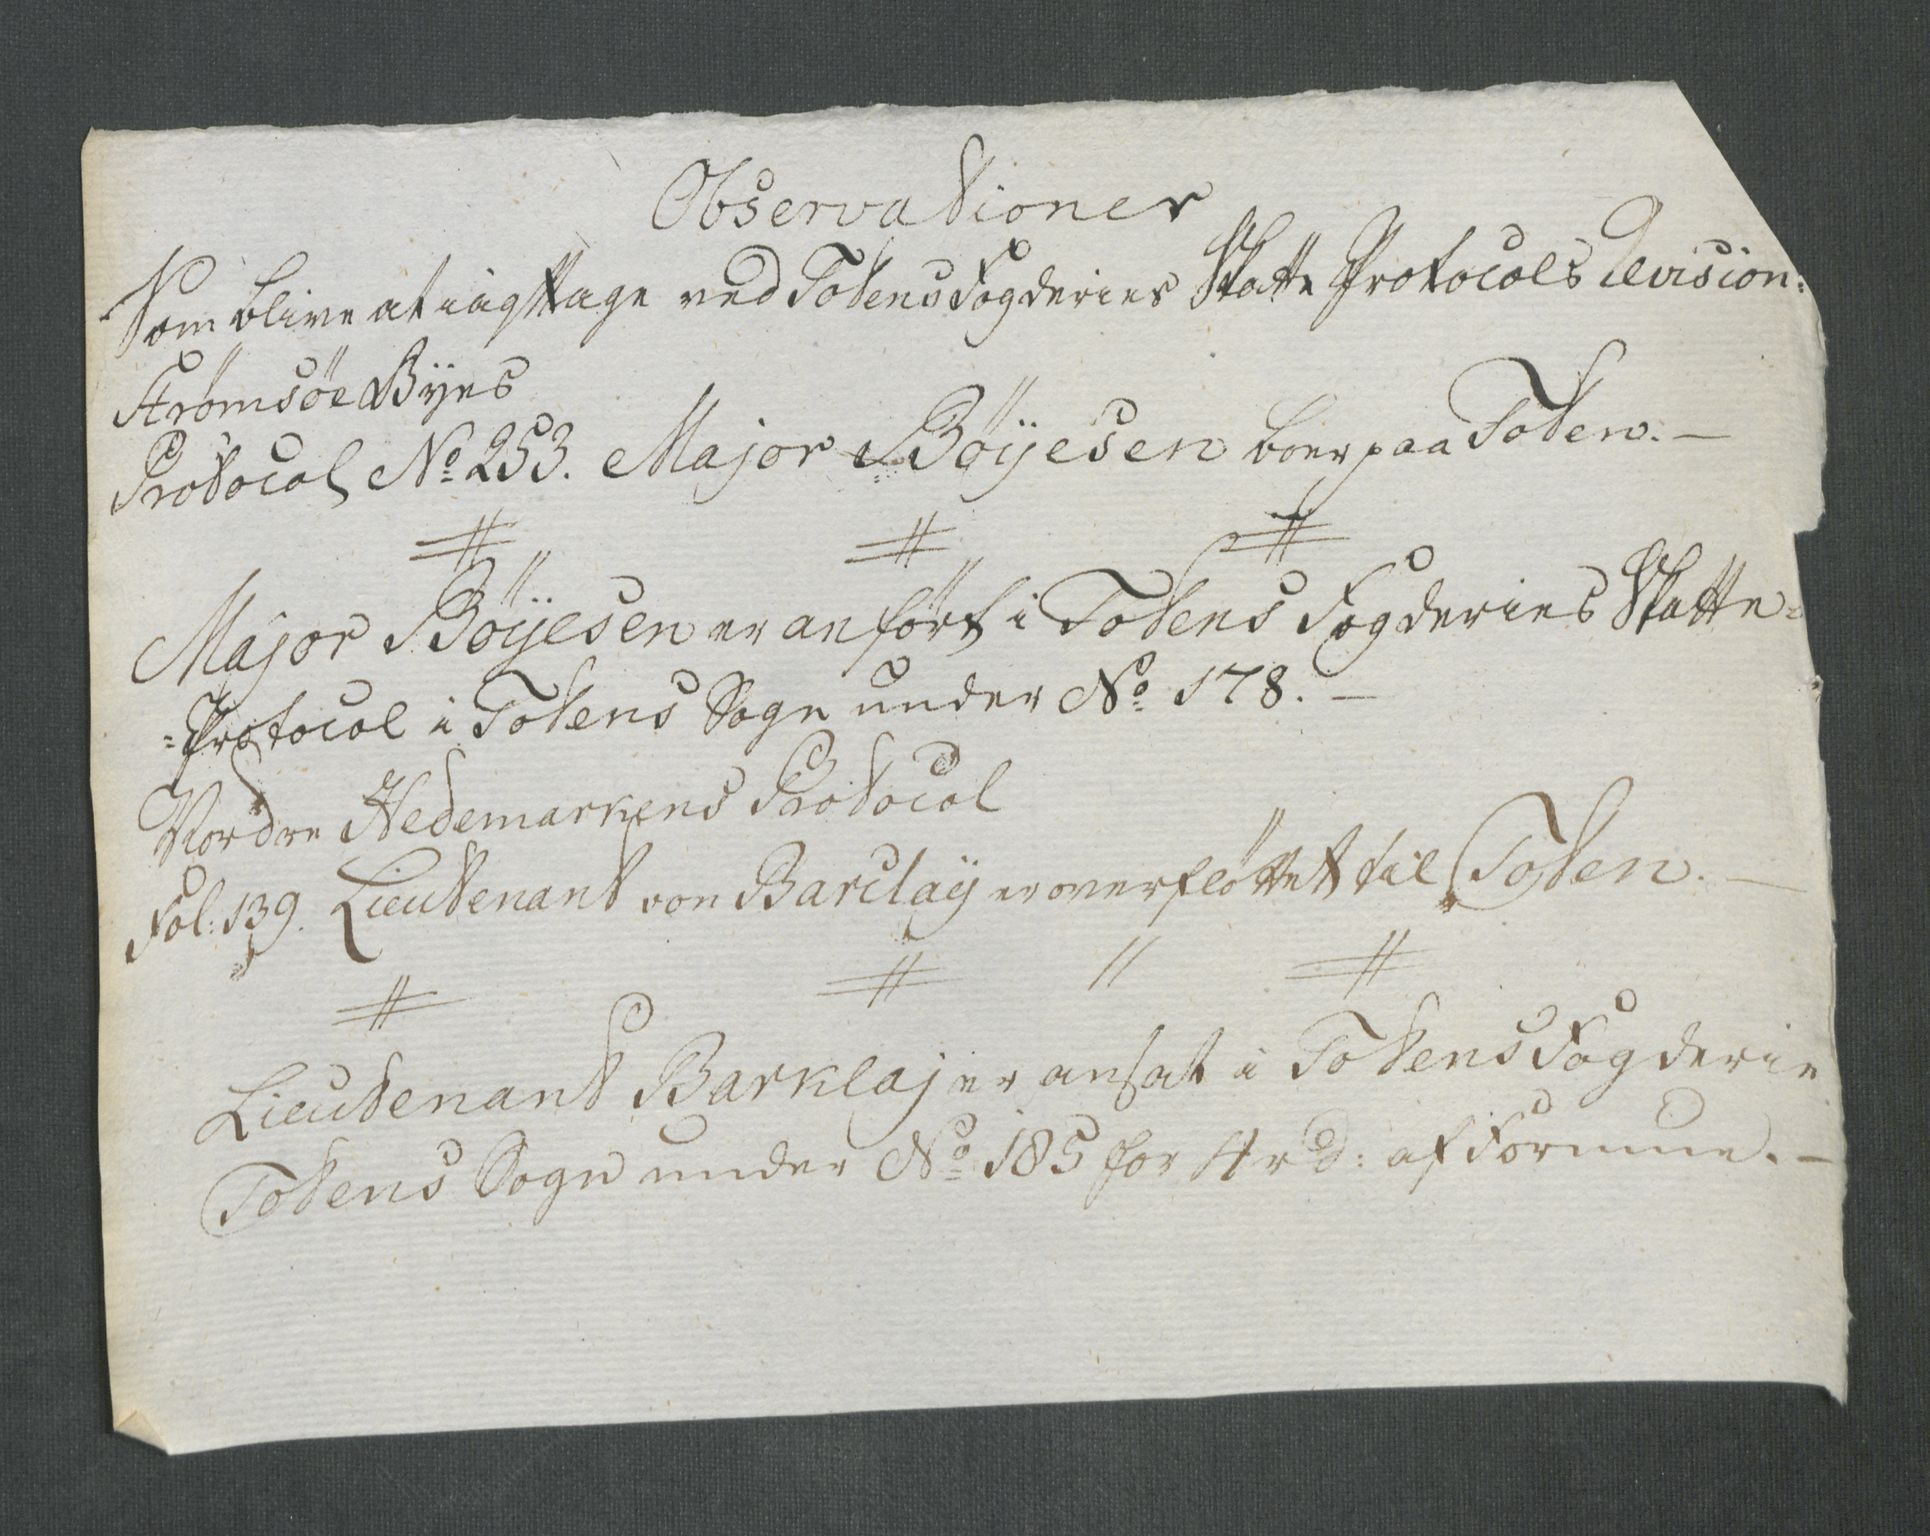 Observationer
Som blive at iagttage ved Totens Fogderies Skatte Protocols Revision:
Strömsöe Byes
Protocol No 253. Major Böÿesen boer paa Toten. —
〃 〃 〃
Major Böÿesen er anfört i Totens Fogderies Skatte=
=Protocol i Totens Sogn under No 178. —
Nordre Hedemarkens Protocol
Fol: 139. Lieutenant von Barclaÿ er overflöttet til Toten. —
〃 〃 〃 〃
Lieutenant Barklaj er ansat i Totens Fogderie
Totens Sogn under No 185 for 4 rd: af Formue. —